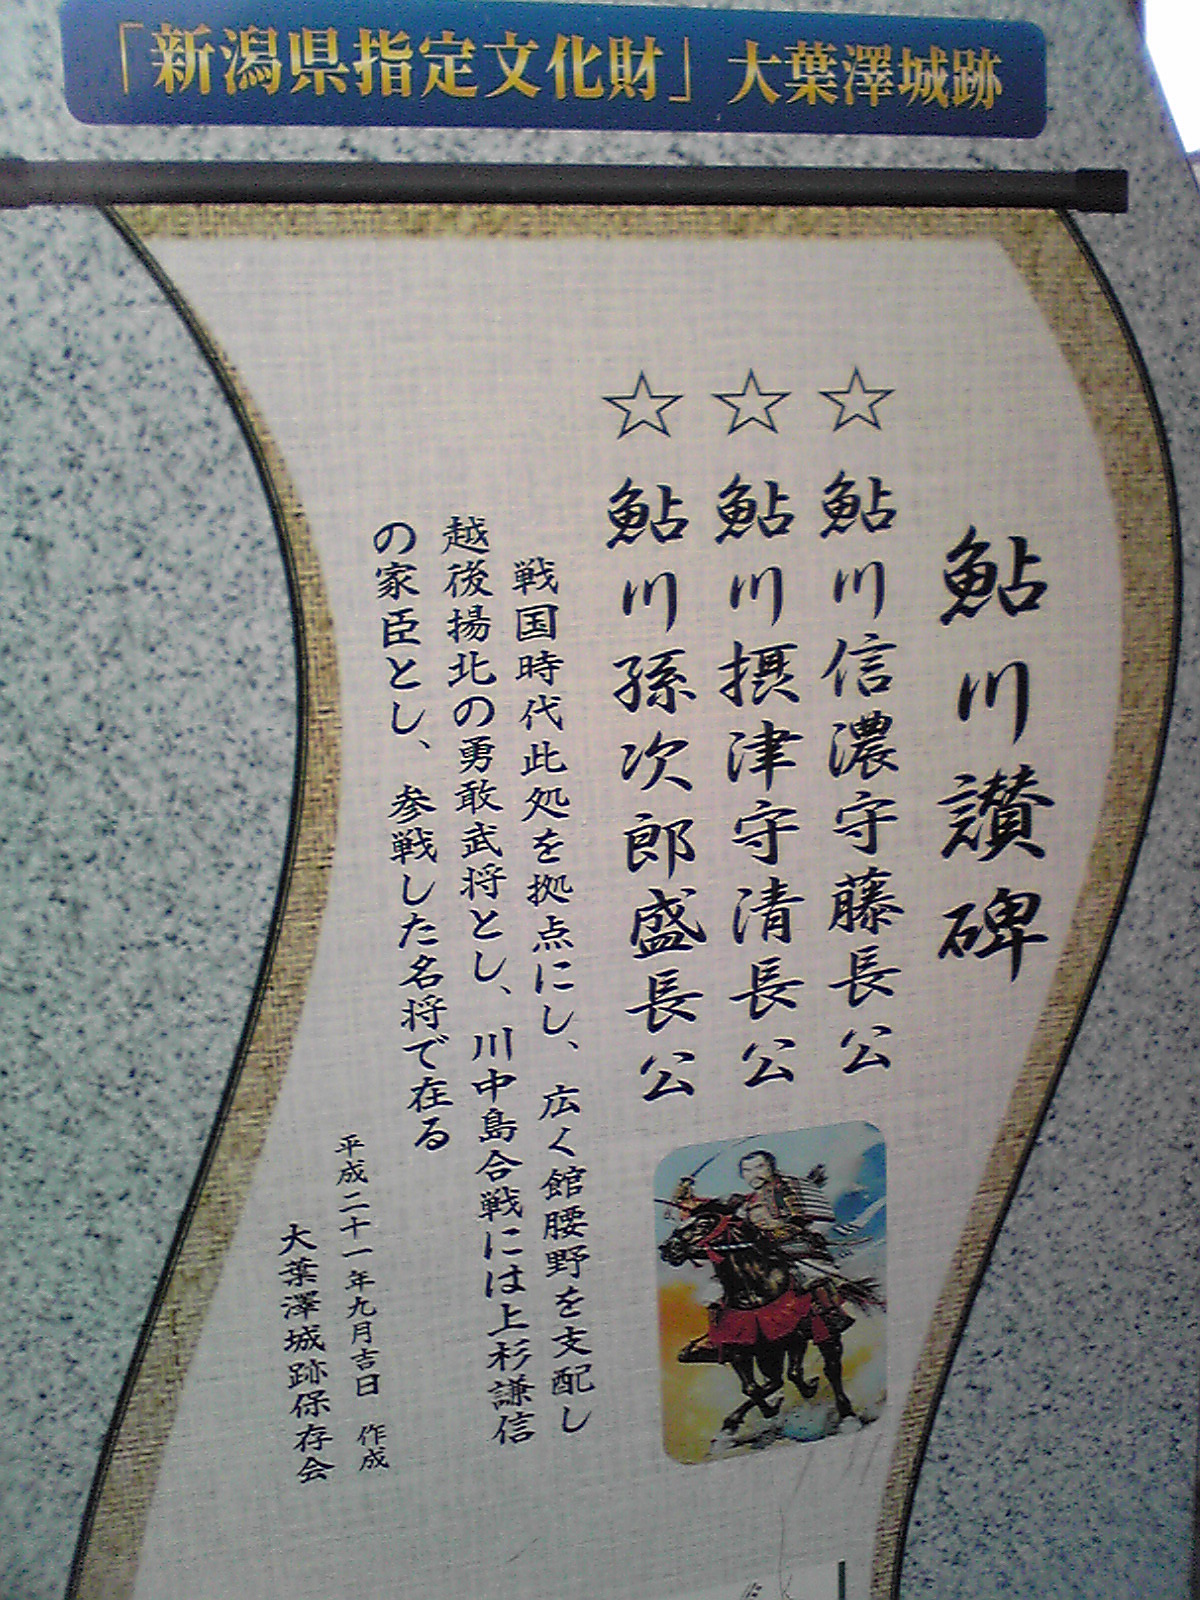 「新潟県指定文化財」大葉澤城跡
鮎川讃碑
☆鮎川信濃守藤長公
☆鮎川摂津守清長公
☆鮎川孫次郎盛長公
戦国時代此処を拠点にし、広く館腰野を支配し
越後揚北の勇敢武将とし、川中島合戦には上杉謙信
の家臣とし、参戦した名将で在る
平成二十一年九月吉日 作成
大葉澤城跡保存会